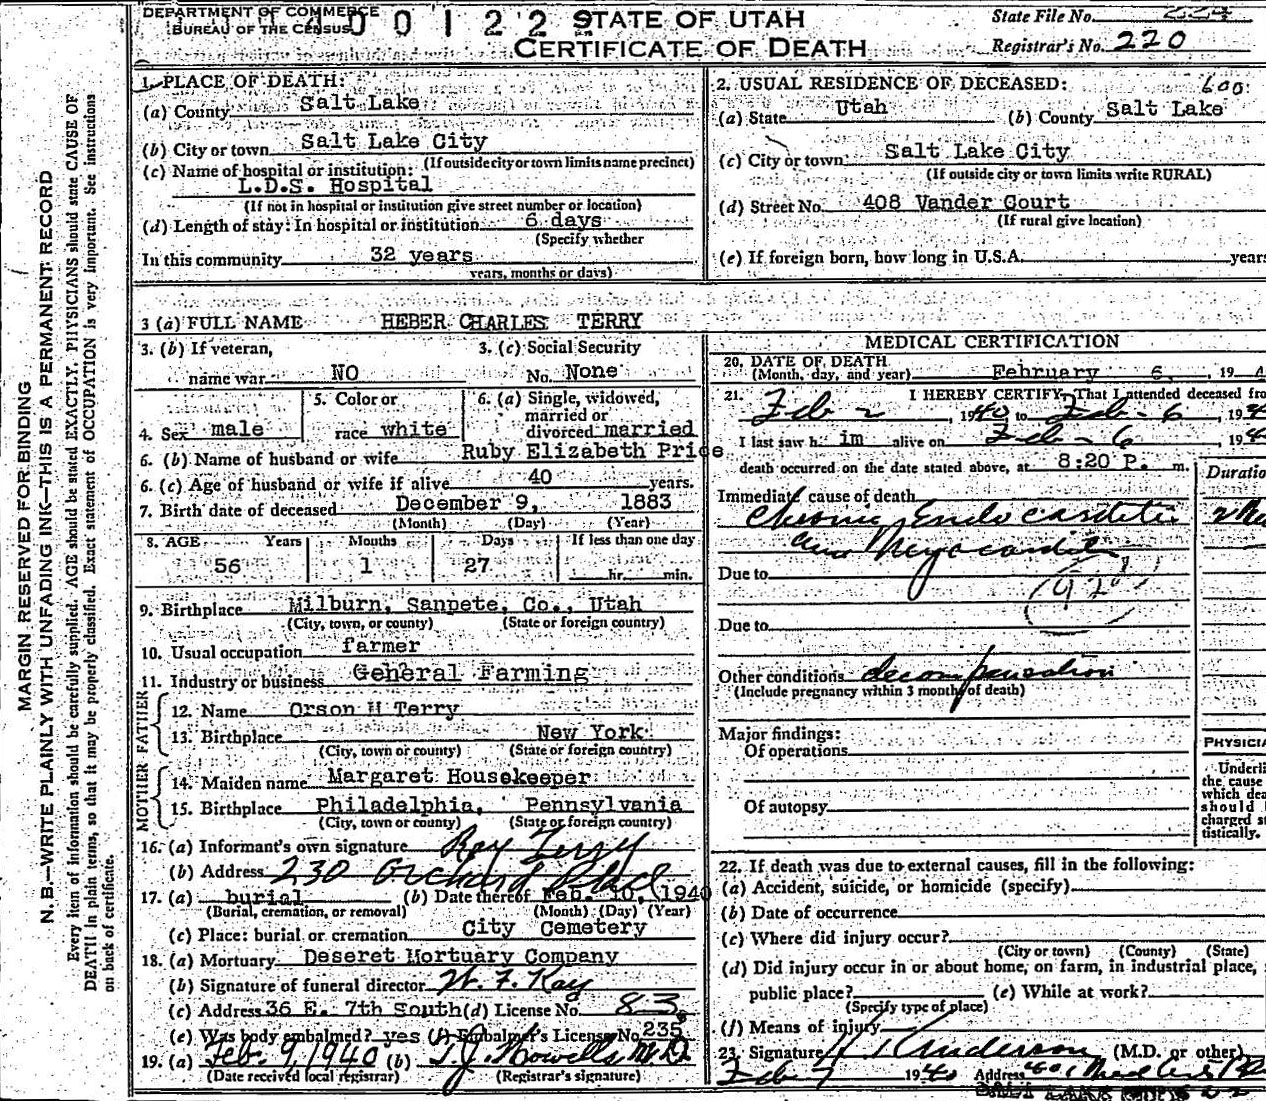 DEPARTMENT OF COMMERCE
BUREAU OF THE CENSUS
400122
STATE OF UTAH
CERTIFICATE OF DEATH
State File No.
Registrar's No. 220
MARGIN RESERVED FOR BINDING
N. B.—WRITE PLAINLY WITH UNFADING INK—THIS IS A PERMANENT RECORD
Every item of information should be carefully supplied. AGE should be stated EXACTLY. PHYSICIANS should state CAUSE OF
DEATH in plain terms, so that it may be properly classified. Exact statement of OCCUPATION is very important. See instructions
on back of certificate.
1. PLACE OF DEATH:
(a) County Salt Lake
(b) City or town Salt Lake City
(If outside city or town limits name precinct)
(c) Name of hospital or institution:
L.D.S. Hospital
(If not in hospital or institution give street number or location)
(d) Length of stay: In hospital or institution 6 days
(Specify whether
In this community 32 years
years, months or days)
2. USUAL RESIDENCE OF DECEASED: 600
(a) State Utah (b) County Salt Lake
(c) City or town: Salt Lake City
(If outside city or town limits write RURAL)
(d) Street No. 408 Vander Court
(If rural give location)
(e) If foreign born, how long in U.S.A. years
3 (a) FULL NAME HEBER CHARLES TERRY
3. (b) If veteran, 3. (c) Social Security
name war NO No. None
4. Sex male 5. Color or race white 6. (a) Single, widowed, married or divorced married
6. (b) Name of husband or wife Ruby Elizabeth Price
6. (c) Age of husband or wife if alive 40 years.
7. Birth date of deceased December 9, 1883
(Month) (Day) (Year)
8. AGE Years Months Days If less than one day
56 1 27 hr. min.
9. Birthplace Milburn, Sanpete, Co., Utah
(City, town, or county) (State or foreign country)
10. Usual occupation farmer
11. Industry or business General Farming
FATHER
12. Name Orson H Terry
13. Birthplace New York
(City, town or county) (State or foreign country)
MOTHER
14. Maiden name Margaret Housekeeper
15. Birthplace Philadelphia, Pennsylvania
(City, town or county) (State or foreign country)
16. (a) Informant's own signature Ray Terry
(b) Address 230 Orchard Place
17. (a) burial (b) Date thereof Feb. 10, 1940
(Burial, cremation, or removal) (Month) (Day) (Year)
(c) Place: burial or cremation City Cemetery
18. (a) Mortuary Deseret Mortuary Company
(b) Signature of funeral director W. F. Kay
(c) Address 36 E. 7th South (d) License No. 83
(e) Was body embalmed? yes (f) Embalmer's License No. 235
19. (a) Feb. 9, 1940 (b) T.J. Howells M.D.
(Date received local registrar) (Registrar's signature)
MEDICAL CERTIFICATION
20. DATE OF DEATH
(Month, day, and year) February 6, 194
21. I HEREBY CERTIFY, That I attended deceased fro
Feb 2 1940 to Feb - 6, 194
I last saw h. im alive on Feb - 6, 194
death occurred on the date stated above, at 8:20 P. m.
Duratio
Immediate cause of death
Chronic Endocarditis
and Myocarditis
Due to
Due to
Other conditions decompensation
(Include pregnancy within 3 months of death)
Major findings:
Of operations
Of autopsy
PHYSICIA
Underli
the cause
which dea
should
charged st
tistically.
22. If death was due to external causes, fill in the following:
(a) Accident, suicide, or homicide (specify)
(b) Date of occurrence
(c) Where did injury occur?
(City or town) (County) (State)
(d) Did injury occur in or about home, on farm, in industrial place,
public place? (e) While at work?
(Specify type of place)
(f) Means of injury
23. Signature Anderson (M.D. or other)
Feb 7 1940 Address
SALT LAKE